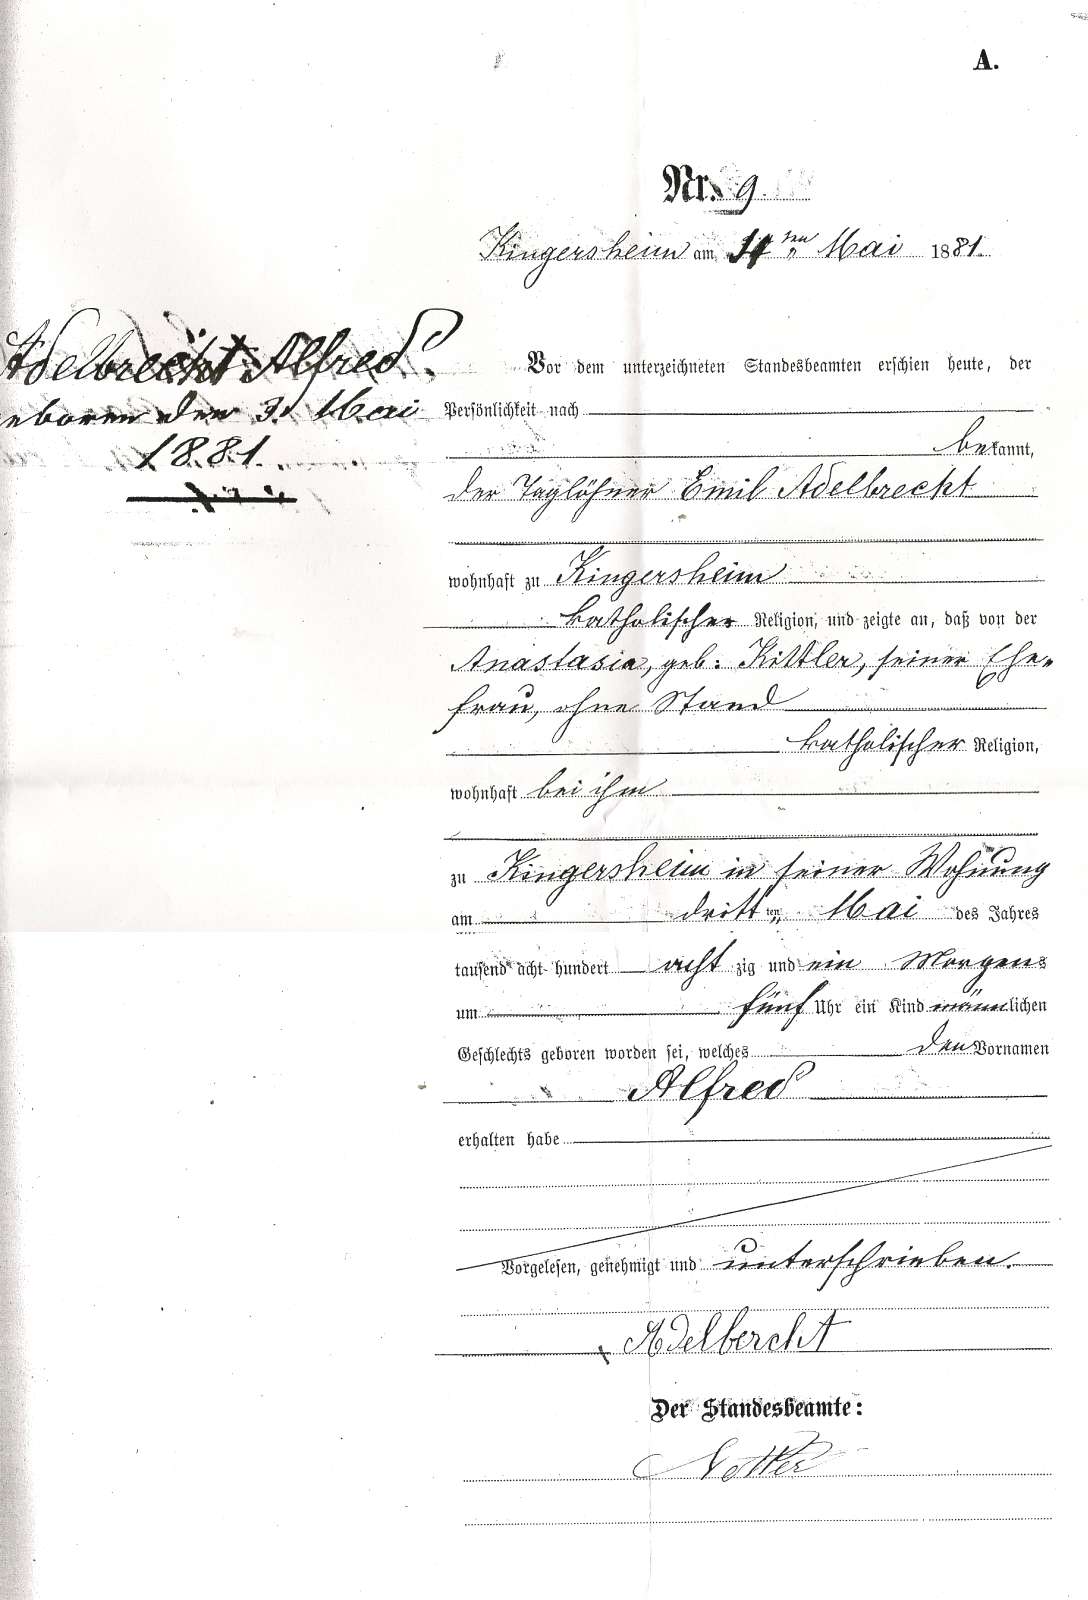 A.
Nr. 9.
Kingersheim am ten Mai 1881.
Adelbrecht Alfred.
eboren den 3. Mai
1881.
Vor dem unterzeichneten Standesbeamten erschien heute, der
Persönlichkeit nach
bekannt,
der Taglöhner Emil Adelbrecht
wohnhaft zu Kingersheim
katholischer Religion, und zeigte an, daß von der
Anastasia, geb: Kittler, seiner Ehe-
frau, ohne Stand
katholischer Religion,
wohnhaft bei ihm
zu Kingersheim in seiner Wohnung
am dritten Mai des Jahres
tausend acht hundert achtzig und ein Morgens
um fünf Uhr ein Kind männlichen
Geschlechts geboren worden sei, welches den Vornamen
Alfred
erhalten habe
Vorgelesen, genehmigt und unterschrieben.
Adelbercht
Der Standesbeamte: